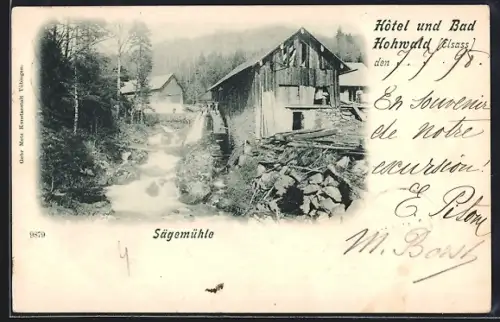 Hôtel und Bad
Hohwald (Elsass)
den 7.7.98.
En souvenir
de notre
excursion!
E.
M.
Sägemühle
9879
Gebr Metz Kunstanstalt Tübingen.
4